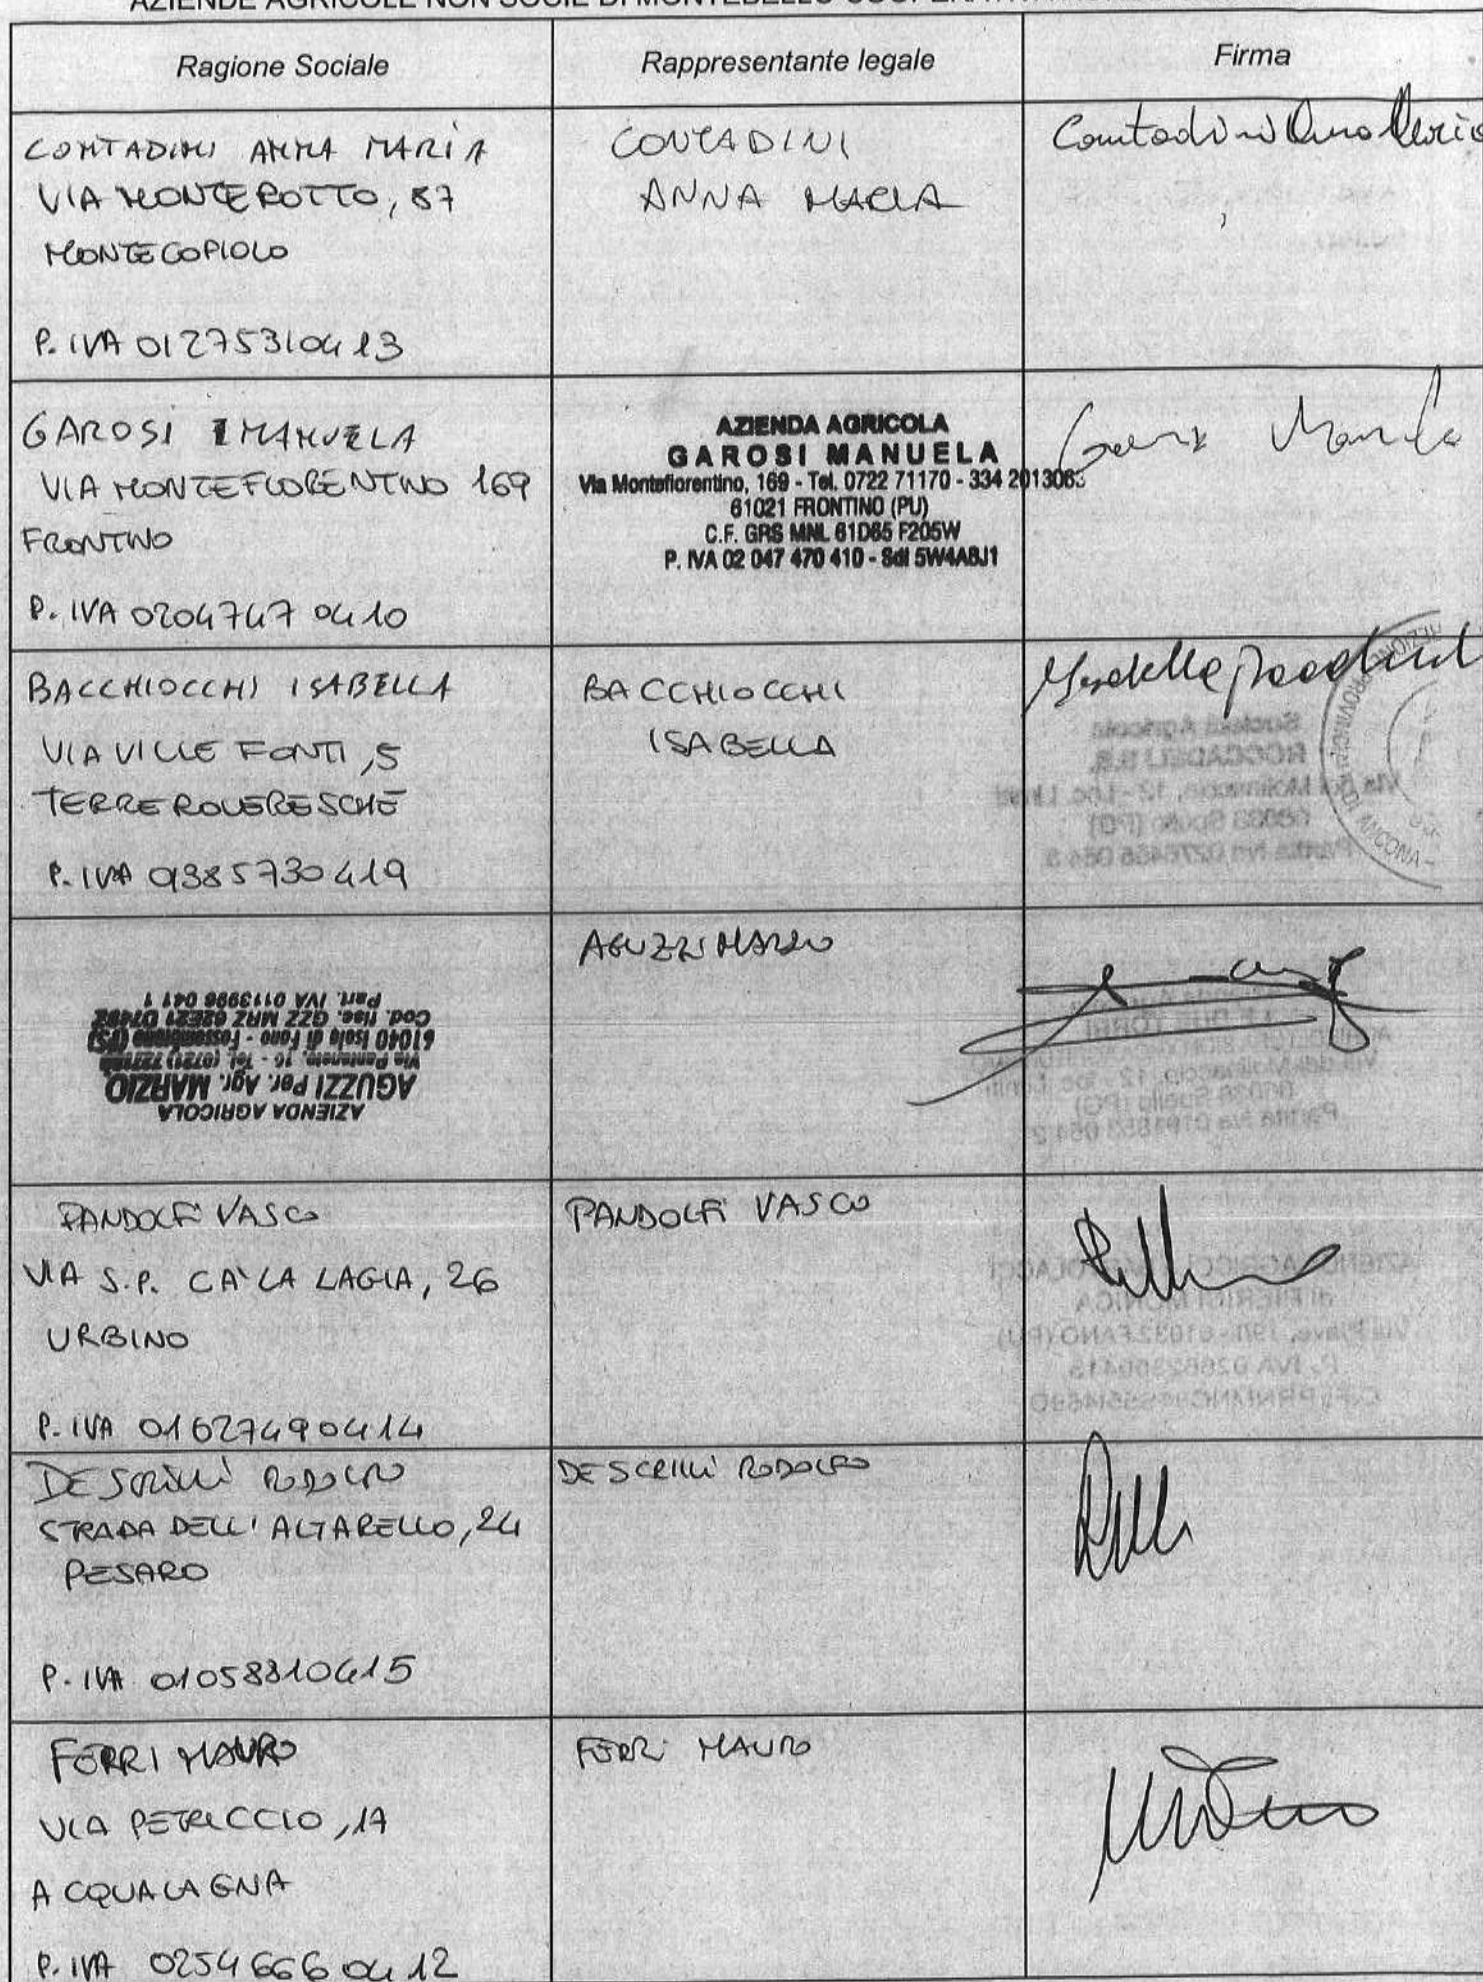 AZIENDE AGRICOLE NON SOCIE DI MONTEBELLO COOPERATIVA
Ragione Sociale
Rappresentante legale
Firma
CONTADINI ANNA MARIA
VIA MONTEROTTO, 87
MONTECOPIOLO
P. IVA 01275310413
CONTADINI
ANNA MARIA
Contadini Anna Maria
GAROSI MANUELA
VIA MONTEFIORENTINO 169
FRONTINO
P. IVA 02047470410
AZIENDA AGRICOLA
GAROSI MANUELA
Via Montefiorentino, 169 - Tel. 0722 71170 - 334 2013063
61021 FRONTINO (PU)
C.F. GRS MNL 61D65 F205W
P. IVA 02 047 470 410 - SdI 5W4A8J1
Garosi Manuela
BACCHIOCCHI ISABELLA
VIA VILLE FONTI, 5
TERRE ROVERESCHE
P. IVA 01385730419
BACCHIOCCHI
ISABELLA
Isabella Bacchiocchi
AZIENDA AGRICOLA
AGUZZI Per. Agr. MARZIO
Via Pantaneto, 16 - Tel. (0721)
61040 Isola di Fano - Fossombrone (PS)
Cod. fisc. GZZ MRZ 62E21 D749Z
Part. IVA 0113996 041 1
AGUZZI MARZIO
PANDOLFI VASCO
VIA S.P. CA' LA LAGIA, 26
URBINO
P. IVA 01627490414
PANDOLFI VASCO
DESCRILLI RODOLFO
STRADA DELL'ALTARELLO, 24
PESARO
P. IVA 01058810415
DESCRILLI RODOLFO
FERRI MAURO
VIA PETRICCIO, 17
ACQUALAGNA
P. IVA 02546660412
FERRI MAURO